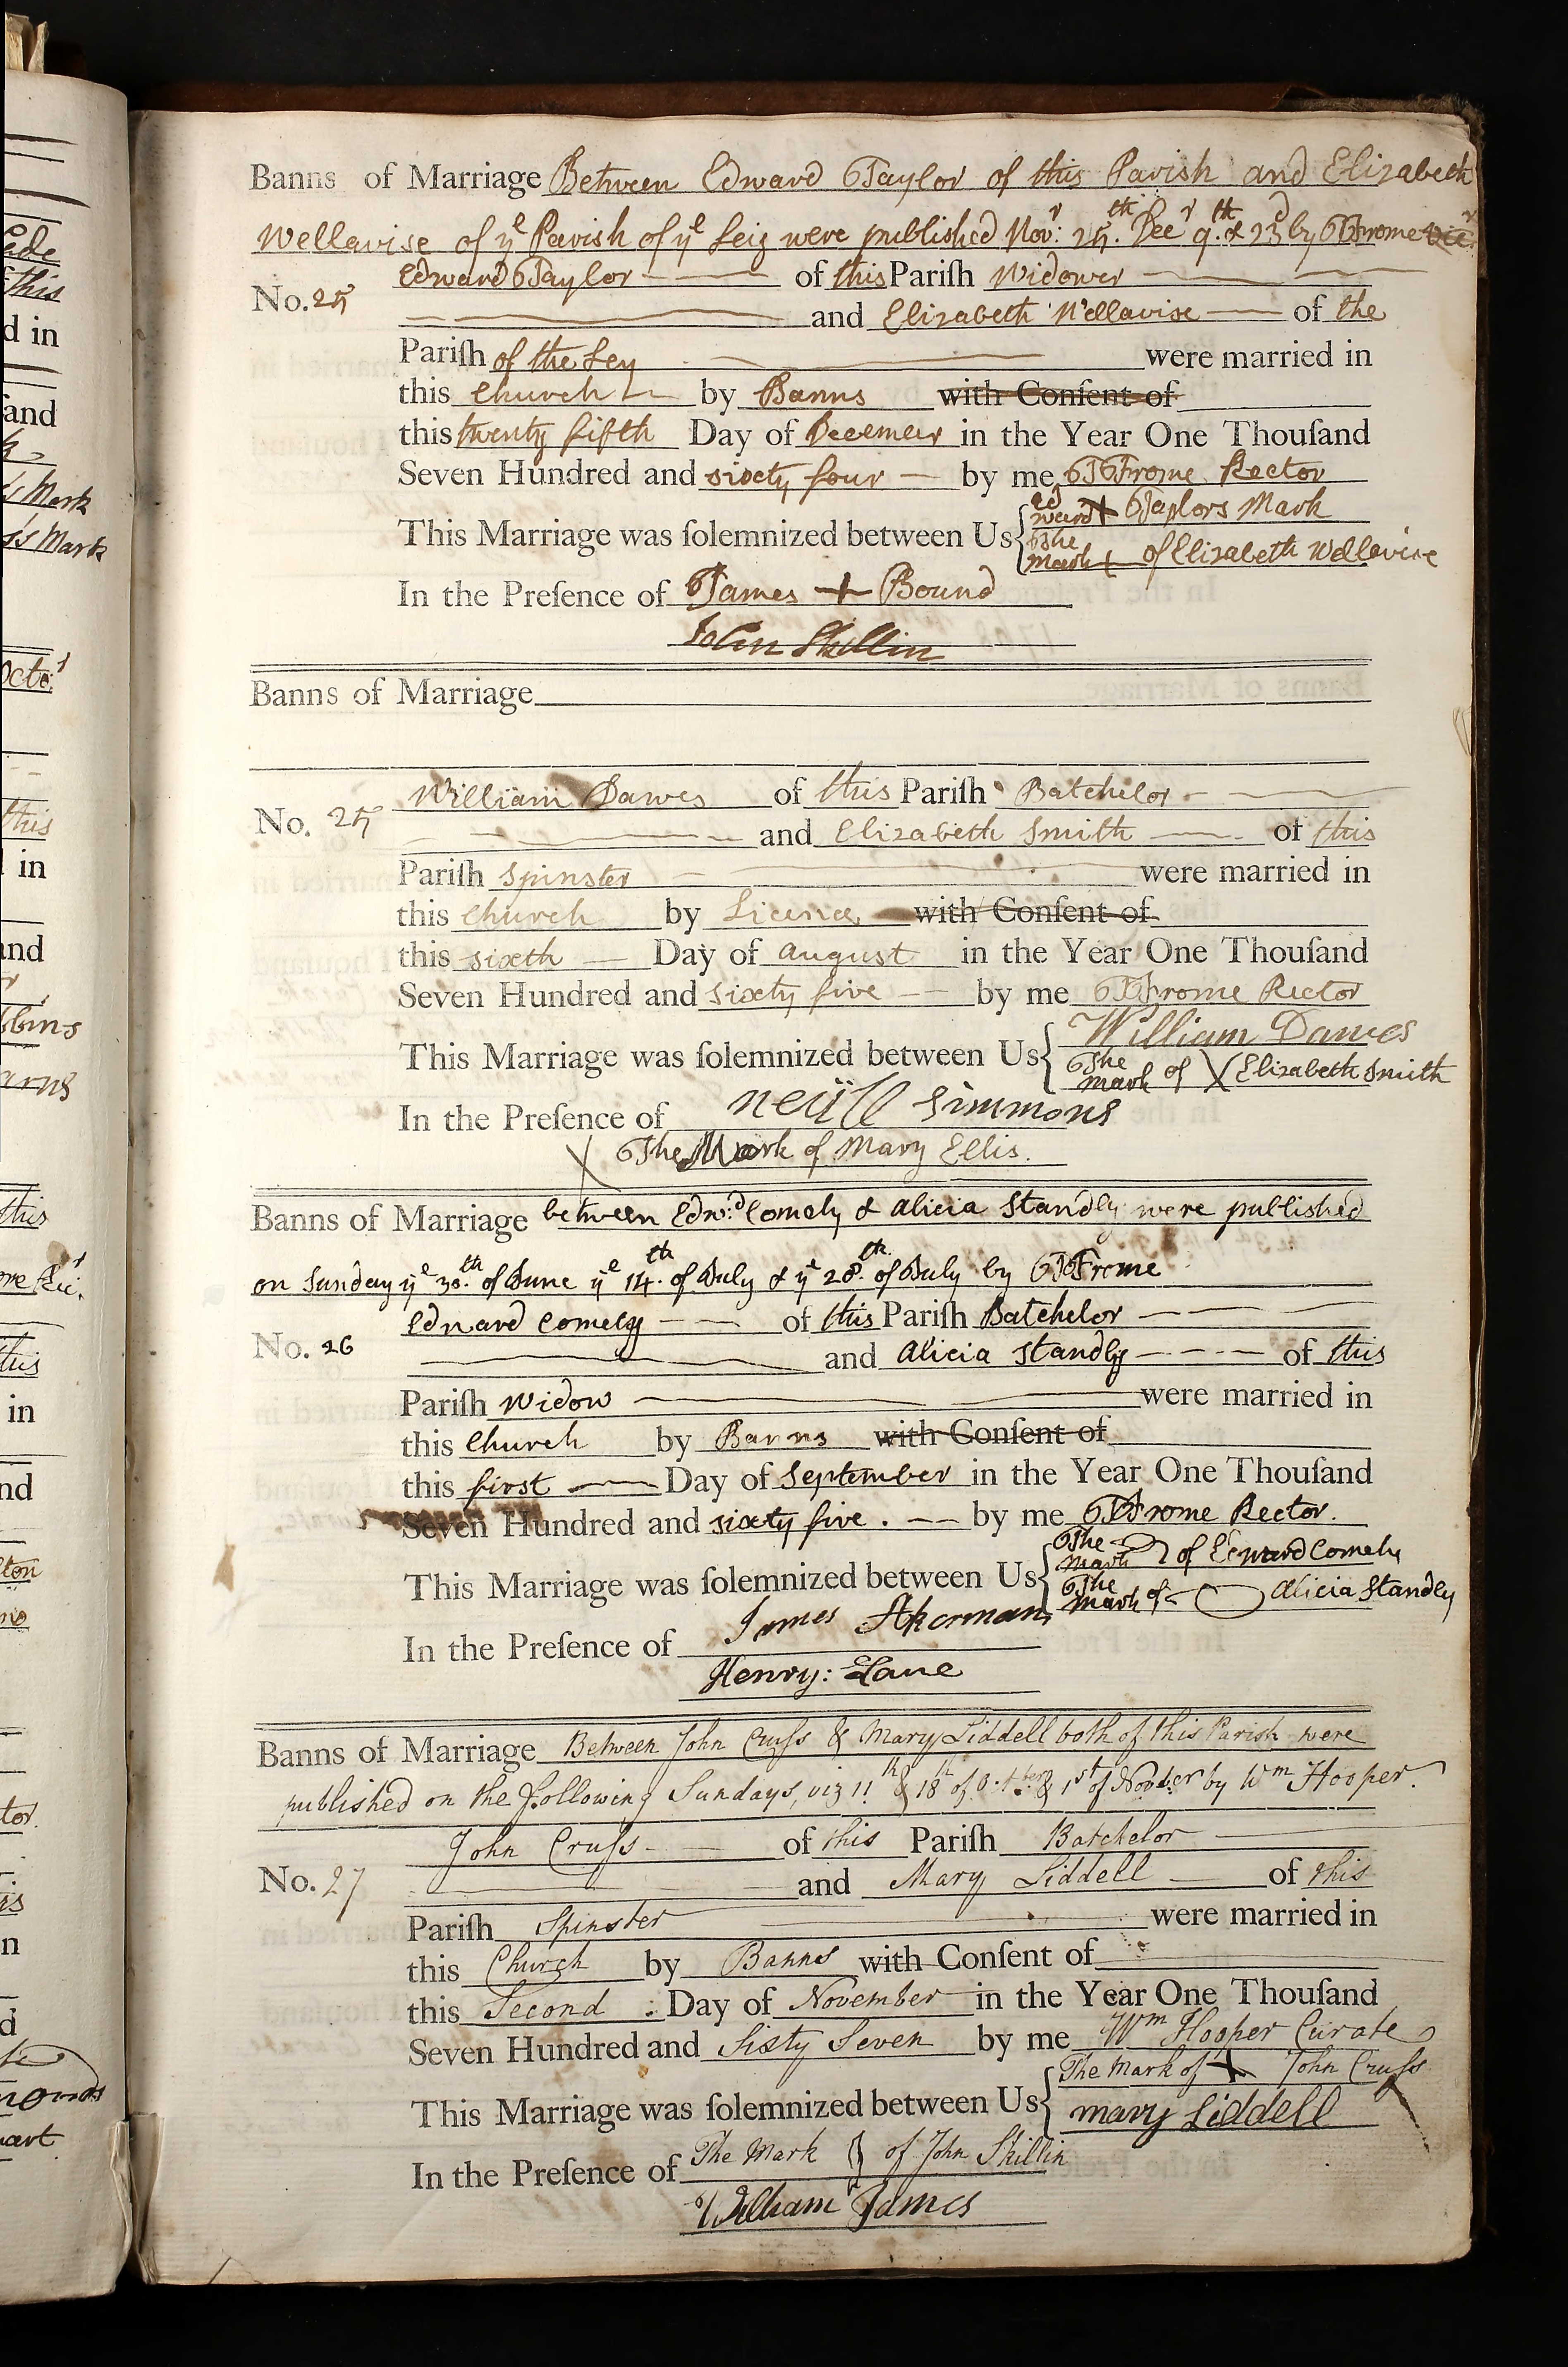 Banns of Marriage Between Edward Taylor of this Parish and Elizabeth
Wellavise of yᵉ Parish of yᵉ Leig were published Novʳ: 25ᵗʰ. Decʳ 9ᵗʰ. & 23ᵈ by T Frome
Edward Taylor of this Pariſh Widower
No. 25
and Elizabeth Wellavise of the
Pariſh of the Ley were married in
this Church by Banns with Conſent of
this twenty fifth Day of Decemeir in the Year One Thouſand
Seven Hundred and sixty four by me T Frome Rector
Edward + Taylors Mark
This Marriage was ſolemnized between Us
The Mark + of Elizabeth Wellavise
In the Preſence of James + Bound
John Skillin
Banns of Marriage
William Dawes of this Pariſh Batchelor
No. 25
and Elizabeth Smith of this
Pariſh Spinster were married in
this Church by Licence with Conſent of
this sixth Day of August in the Year One Thouſand
Seven Hundred and sixty five by me T Frome Rector
William Dawes
This Marriage was ſolemnized between Us
The Mark of X Elizabeth Smith
In the Preſence of Simmons
X The Mark of Mary Ellis.
Banns of Marriage between Edwᵈ: Comely & Alicia Standly were published
on Sunday yᵉ 30ᵗʰ. of June yᵉ 14ᵗʰ. of July & yᵉ 28ᵗʰ. of July by T Frome
Edward Comely of this Pariſh Batchelor
No. 26
and Alicia Standly of this
Pariſh Widow were married in
this Church by Banns with Conſent of
this first Day of September in the Year One Thouſand
Seven Hundred and sixty five. by me T Frome Rector.
The Mark of Edward Comely
This Marriage was ſolemnized between Us
The Mark of Alicia Standly
In the Preſence of James Akerman
Henry: Lane
Banns of Marriage Between John Cruſs & Mary Liddell both of this Parish were
published on the following Sundays, viz 11ᵗʰ & 18ᵗʰ of & 1ˢᵗ of by Wᵐ Hooper.
John Cruſs of this Pariſh Batchelor
No. 27
and Mary Liddell of this
Pariſh Spinster were married in
this Church by Banns with Conſent of
this Second Day of November in the Year One Thouſand
Seven Hundred and Sixty Seven by me Wᵐ Hooper Curate
The Mark of + John Cruſs
This Marriage was ſolemnized between Us
mary Liddell
In the Preſence of The Mark of John Skillin
William James